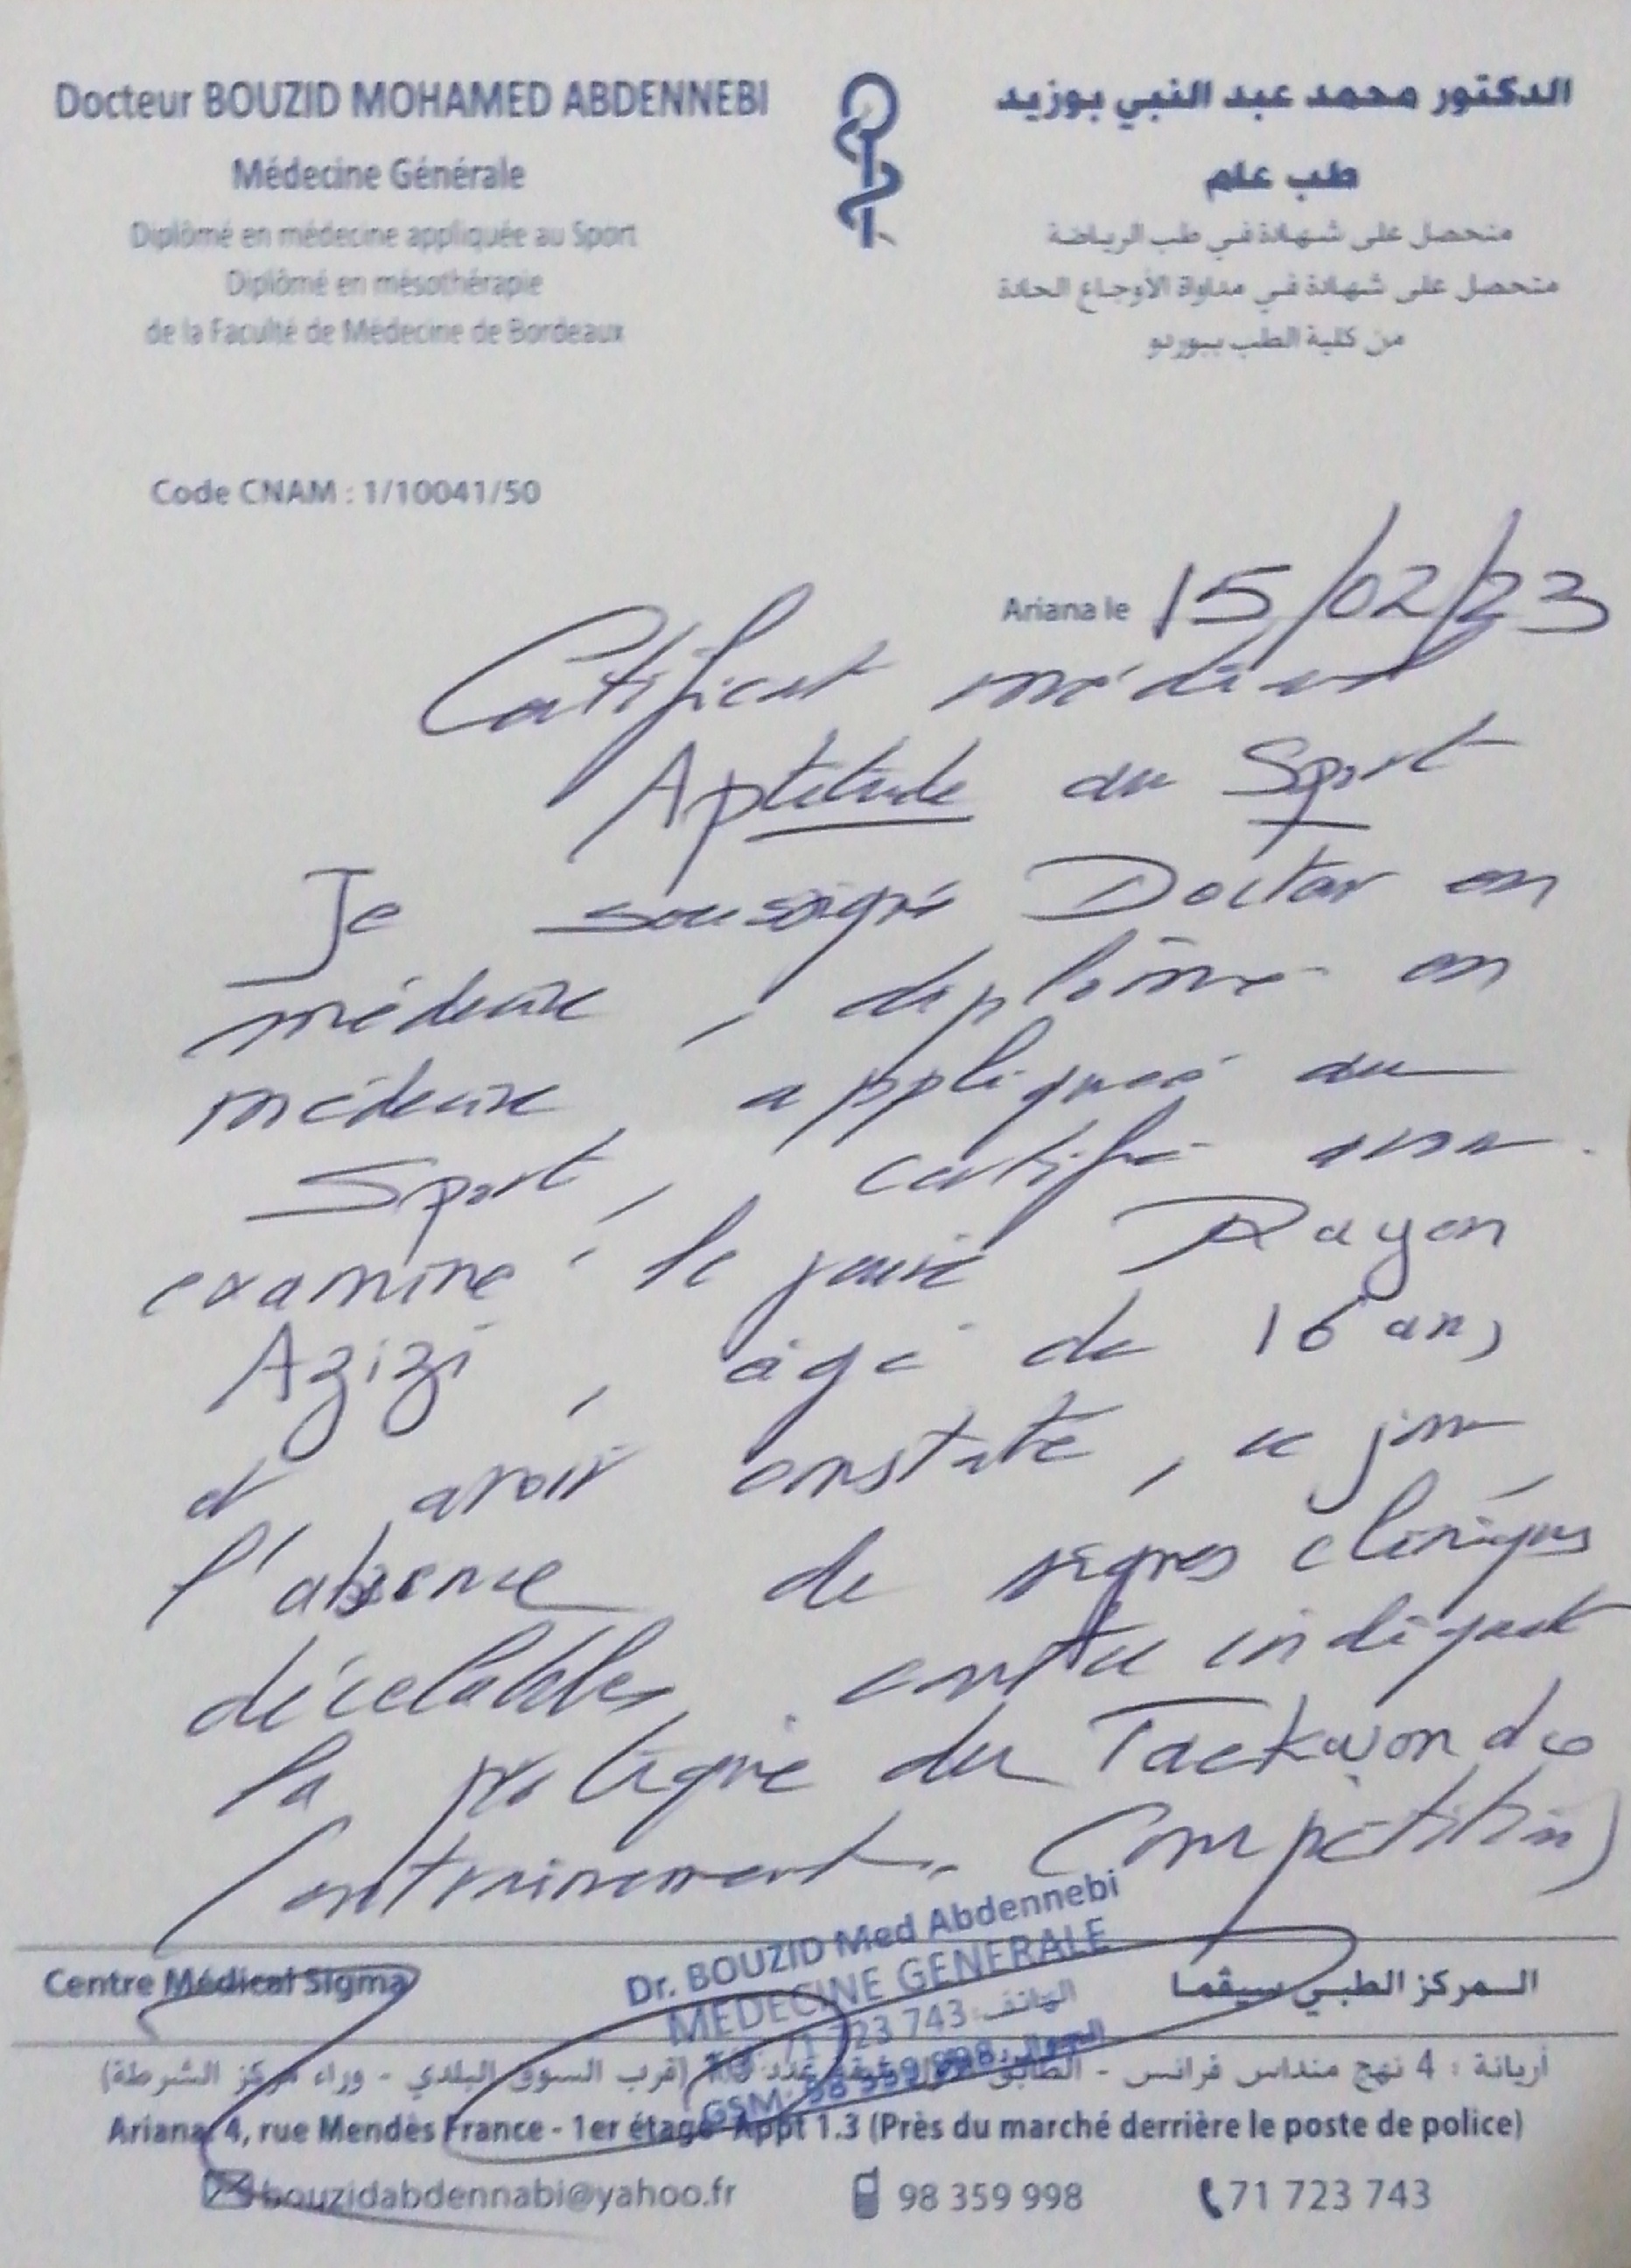 Docteur BOUZID MOHAMED ABDENNEBI
Médecine Générale
Diplômé en médecine appliquée au Sport
Diplômé en mésothérapie
de la Faculté de Médecine de Bordeaux
الدكتور محمد عبد النبي بوزيد
طب عام
متحصل على شهادة في طب الرياضة
متحصل على شهادة في مداواة الأوجاع الحادة
من كلية الطب ببوردو
Code CNAM : 1/10041/50
Ariana le 15/02/23
Certificat médical
Aptitude au Sport
Je soussigné Docteur en
médecine, diplômé en
médecine appliquée au
Sport, certifie avoir
examiné le jeune Rayen
Azizi, âgé de 16 ans,
et avoir constaté, ce jour
l'absence de signes cliniques
décelables contre indiquant
la pratique du Taekwondo
(entrainement. Compétition)
Dr. BOUZID Med Abdennebi
MEDECINE GENERALE
71 723 743 الهاتف:
GSM: 98 359 998 الجوال:
Centre Médical Sigma
المركز الطبي سيڤما
أريانة : 4 نهج منداس فرانس - الطابق (قرب السوق البلدي - وراء مركز الشرطة)
Ariana: 4, rue Mendès France - 1er étage Appt 1.3 (Près du marché derrière le poste de police)
bouzidabdennabi@yahoo.fr 98 359 998 71 723 743